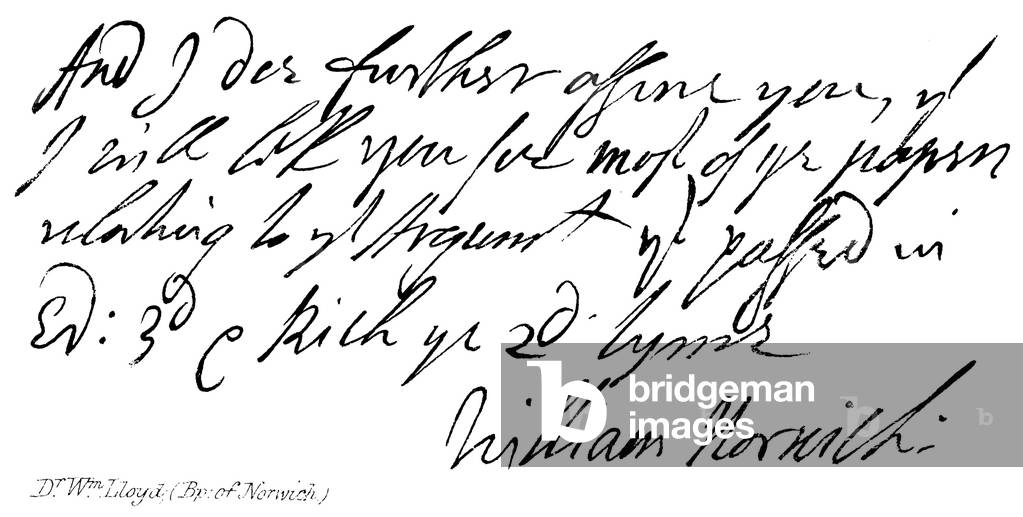 And I doe further assure you, yt
I will look you for most of ye papers
relating to yt Argument yt passed in
Ed: 3d & Rich ye 2d tyme
William Norwich:
bridgeman
images
b
b
Dr. Wm. Lloyd, (Bp: of Norwich)